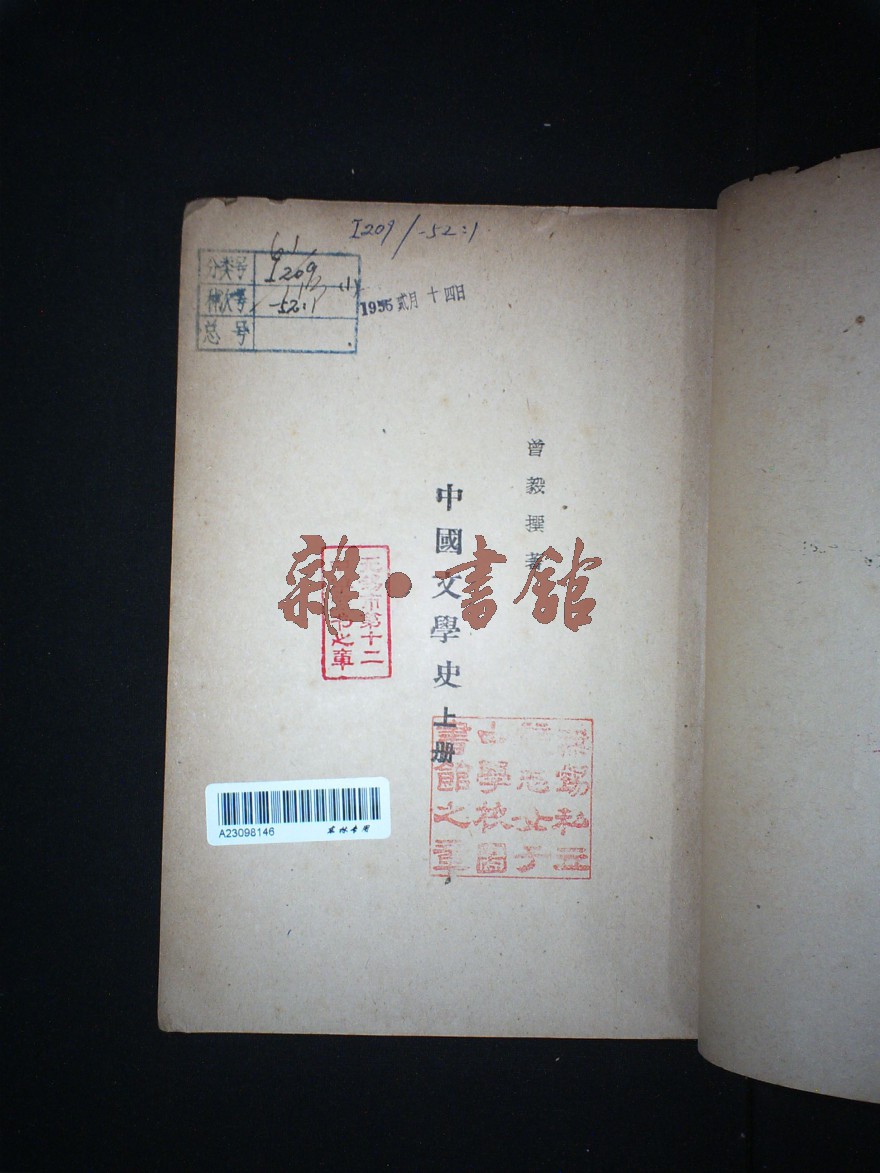 I209/-52:1
分类号 I209
种次号 -52:1 (1)
总号
1956 贰月 十四日
曾毅撰著
中國文學史上册
雜·書館
無錫市第十二
書之章
無錫私立
志女子
中學校圖
書館之章
A23098146